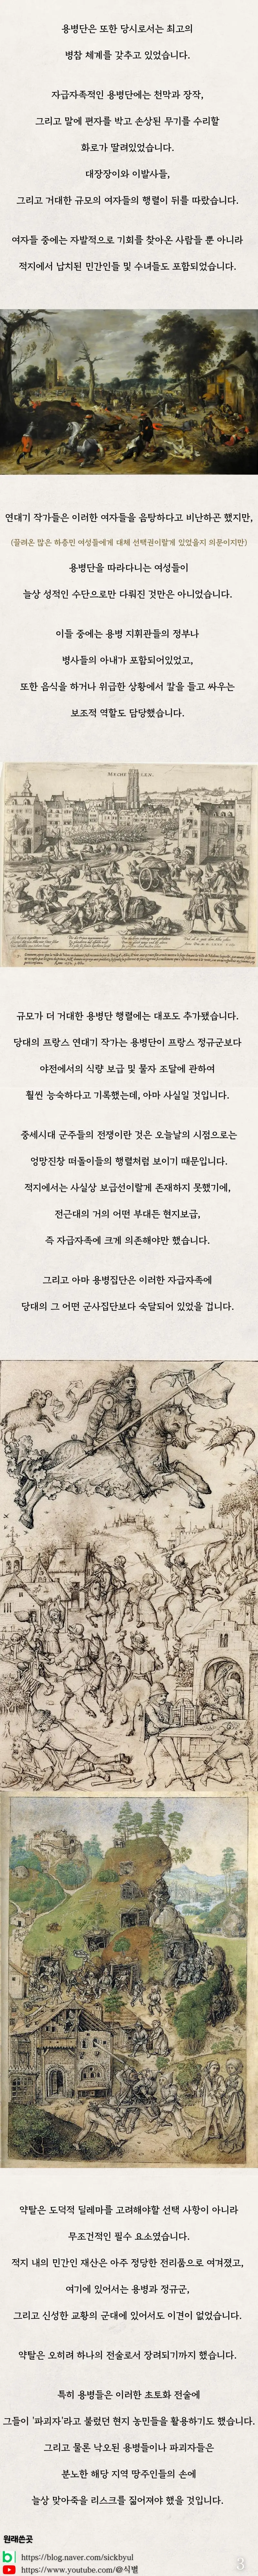 용병단은 또한 당시로서는 최고의
병참 체계를 갖추고 있었습니다.
자급자족적인 용병단에는 천막과 장작,
그리고 말에 편자를 박고 손상된 무기를 수리할
화로가 딸려있었습니다.
대장장이와 이발사들,
그리고 거대한 규모의 여자들의 행렬이 뒤를 따랐습니다.
여자들 중에는 자발적으로 기회를 찾아온 사람들 뿐 아니라
적지에서 납치된 민간인들 및 수녀들도 포함되었습니다.
연대기 작가들은 이러한 여자들을 음탕하다고 비난하곤 했지만,
(끌려온 많은 하층민 여성들에게 대체 선택권이랄게 있었을지 의문이지만)
용병단을 따라다니는 여성들이
늘상 성적인 수단으로만 다뤄진 것만은 아니었습니다.
이들 중에는 용병 지휘관들의 정부나
병사들의 아내가 포함되어있었고,
또한 음식을 하거나 위급한 상황에서 칼을 들고 싸우는
보조적 역할도 담당했습니다.
규모가 더 거대한 용병단 행렬에는 대포도 추가됐습니다.
당대의 프랑스 연대기 작가는 용병단이 프랑스 정규군보다
야전에서의 식량 보급 및 물자 조달에 관하여
훨씬 능숙하다고 기록했는데, 아마 사실일 것입니다.
중세시대 군주들의 전쟁이란 것은 오늘날의 시점으로는
엉망진창 떠돌이들의 행렬처럼 보이기 때문입니다.
적지에서는 사실상 보급선이랄게 존재하지 못했기에,
전근대의 거의 어떤 부대든 현지보급,
즉 자급자족에 크게 의존해야만 했습니다.
그리고 아마 용병집단은 이러한 자급자족에
당대의 그 어떤 군사집단보다 숙달되어 있었을 겁니다.
약탈은 도덕적 딜레마를 고려해야할 선택 사항이 아니라
무조건적인 필수 요소였습니다.
적지 내의 민간인 재산은 아주 정당한 전리품으로 여겨졌고,
여기에 있어서는 용병과 정규군,
그리고 신성한 교황의 군대에 있어서도 이견이 없었습니다.
약탈은 오히려 하나의 전술로서 장려되기까지 했습니다.
특히 용병들은 이러한 초토화 전술에
그들이 '파괴자'라고 불렸던 현지 농민들을 활용하기도 했습니다.
그리고 물론 낙오된 용병들이나 파괴자들은
분노한 해당 지역 땅주인들의 손에
늘상 맞아죽을 리스크를 짊어져야 했을 것입니다.
원래쓴곳
https://blog.naver.com/sickbyul
https://www.youtube.com/@식별
3